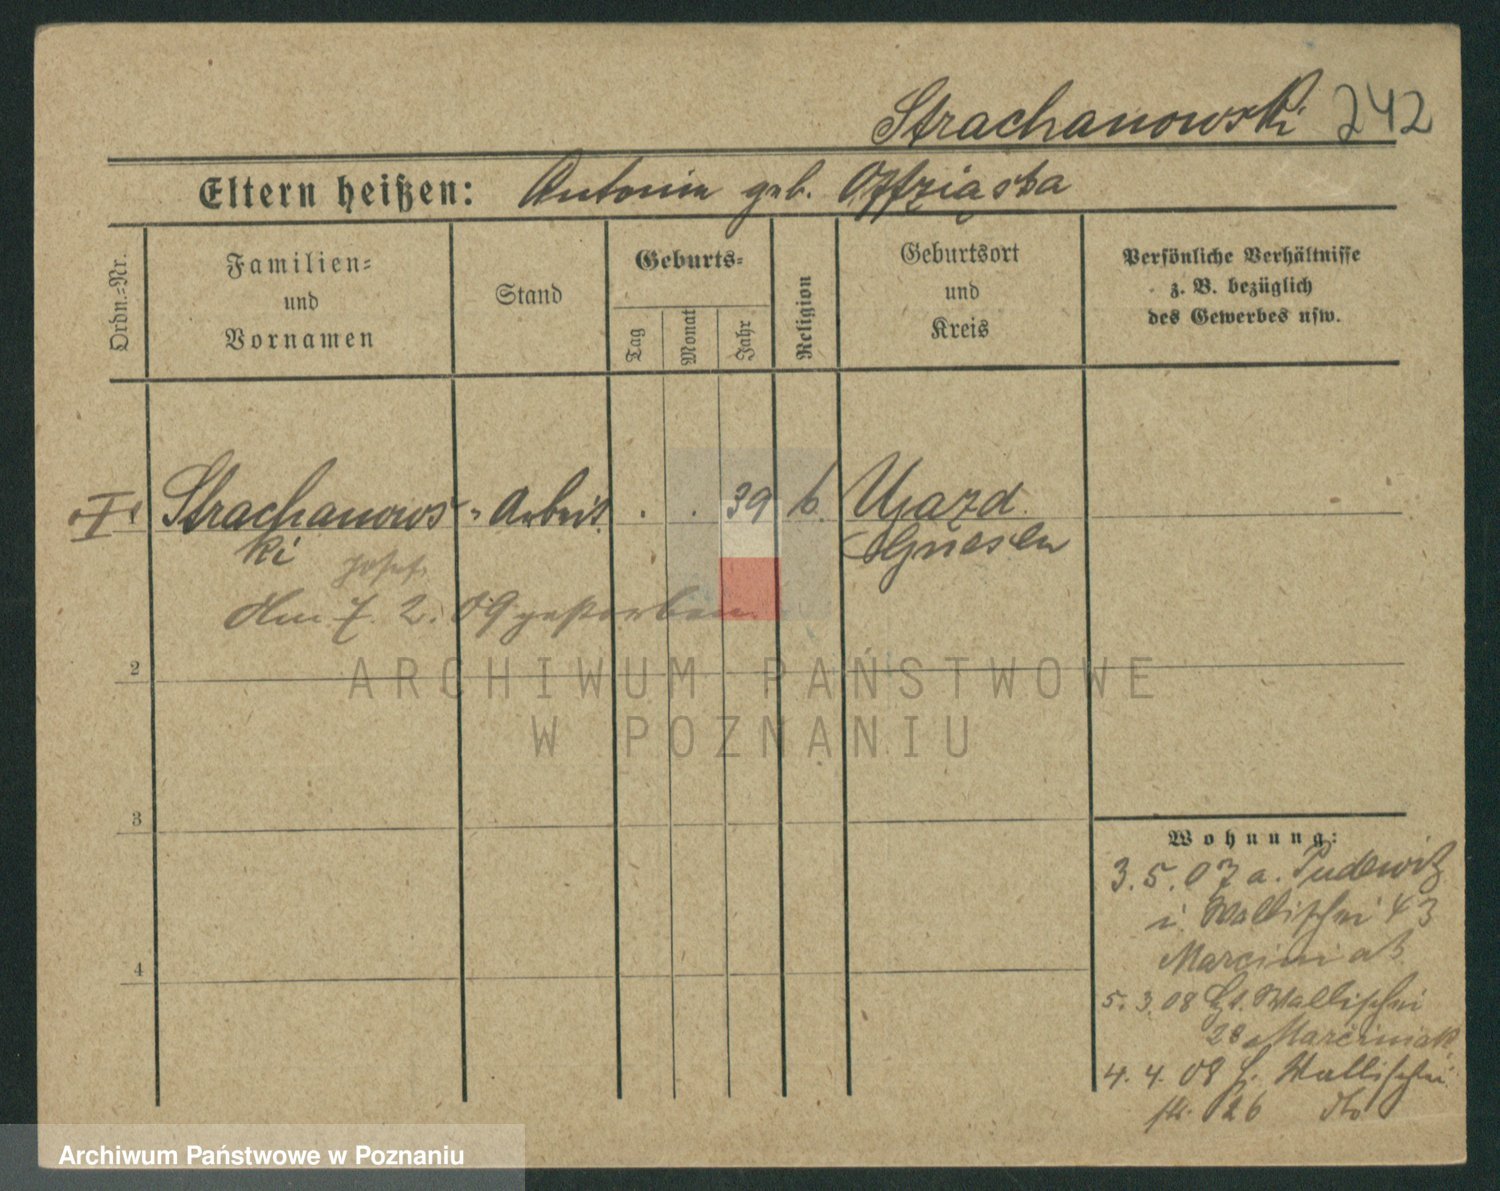 Strachanowski 242
Eltern heißen: Antonin geb. Offziąska
Ordn.=Nr.
Familien=
und
Vornamen
Stand
Geburts=
Tag
Monat
Jahr
Religion
Geburtsort
und
Kreis
Persönliche Verhältnisse
z. B. bezüglich
des Gewerbes usw.
Strachanows- Arbeit. . . 39 k. Ujazd
ki Gnesen
Josef
Am 7. 2. 09 gestorben.
2
3
4
Wohnung:
3. 5. 07 a. Pudewitz
i Wallischei 43
Marciniak
5. 3. 08 Wallischei
28 Marciniak
4. 4. 08 Wallischei
26
ARCHIWUM PAŃSTWOWE
W POZNANIU
Archiwum Państwowe w Poznaniu